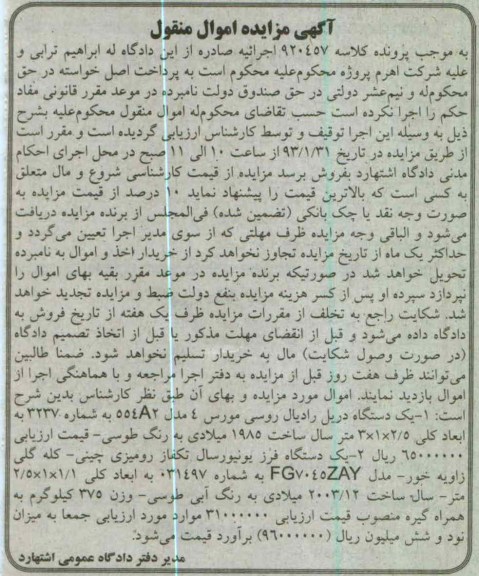 آگهی مزایده اموال منقول
به موجب پرونده کلاسه ۹۲۰۴۵۷ اجرائیه صادره از این دادگاه له ابراهیم ترابی و
علیه شرکت اهرم پروژه محکوم‌علیه محکوم است به پرداخت اصل خواسته در حق
محکوم‌له و نیم‌عشر دولتی در حق صندوق دولت نامبرده در موعد مقرر قانونی مفاد
حکم را اجرا نکرده است حسب تقاضای محکوم‌له اموال منقول محکوم‌علیه بشرح
ذیل به وسیله این اجرا توقیف و توسط کارشناس ارزیابی گردیده است و مقرر است
از طریق مزایده در تاریخ ۹۳/۱/۳۱ از ساعت ۱۰ الی ۱۱ صبح در محل اجرای احکام
مدنی دادگاه اشتهارد بفروش برسد مزایده از قیمت کارشناسی شروع و مال متعلق
به کسی است که بالاترین قیمت را پیشنهاد نماید ۱۰ درصد از قیمت مزایده به
صورت وجه نقد یا چک بانکی (تضمین شده) فی‌المجلس از برنده مزایده دریافت
می‌شود و الباقی وجه مزایده ظرف مهلتی که از سوی مدیر اجرا تعیین می‌گردد و
حداکثر یک ماه از تاریخ مزایده تجاوز نخواهد کرد از خریدار اخذ و اموال به نامبرده
تحویل خواهد شد در صورتیکه برنده مزایده در موعد مقرر بقیه بهای اموال را
نپردازد سپرده او پس از کسر هزینه مزایده بنفع دولت ضبط و مزایده تجدید خواهد
شد. شکایت راجع به تخلف از مقررات مزایده ظرف یک هفته از تاریخ فروش به
دادگاه داده می‌شود و قبل از انقضای مهلت مذکور یا قبل از اتخاذ تصمیم دادگاه
(در صورت وصول شکایت) مال به خریدار تسلیم نخواهد شود. ضمنا طالبین
می‌توانند ظرف هفت روز قبل از مزایده به دفتر اجرا مراجعه و با هماهنگی اجرا از
اموال بازدید نمایند. اموال مورد مزایده و بهای آن طبق نظر کارشناس بدین شرح
است: ۱-یک دستگاه دریل رادیال روسی مورس ۴ مدل ۵۵۴A۲ به شماره ۳۲۳۷ به
ابعاد کلی ۳×۱×۲/۵ متر سال ساخت ۱۹۸۵ میلادی به رنگ طوسی- قیمت ارزیابی
۶۵۰۰۰۰۰۰ ریال ۲-یک دستگاه فرز یونیورسال تکفاز رومیزی چینی- کله گلی
زاویه خور- مدل FG۷۰۴۵ZAY به شماره ۰۳۱۴۹۷ به ابعاد کلی ۲/۵×۱×۱/۱
متر- سال ساخت ۲۰۰۳/۱۲ میلادی به رنگ آبی طوسی- وزن ۳۷۵ کیلوگرم به
همراه گیره منصوب قیمت ارزیابی ۳۱۰۰۰۰۰۰ موارد مورد ارزیابی جمعا به میزان
نود و شش میلیون ریال (۹۶۰۰۰۰۰۰) برآورد قیمت می‌شود.
مدیر دفتر دادگاه عمومی اشتهارد